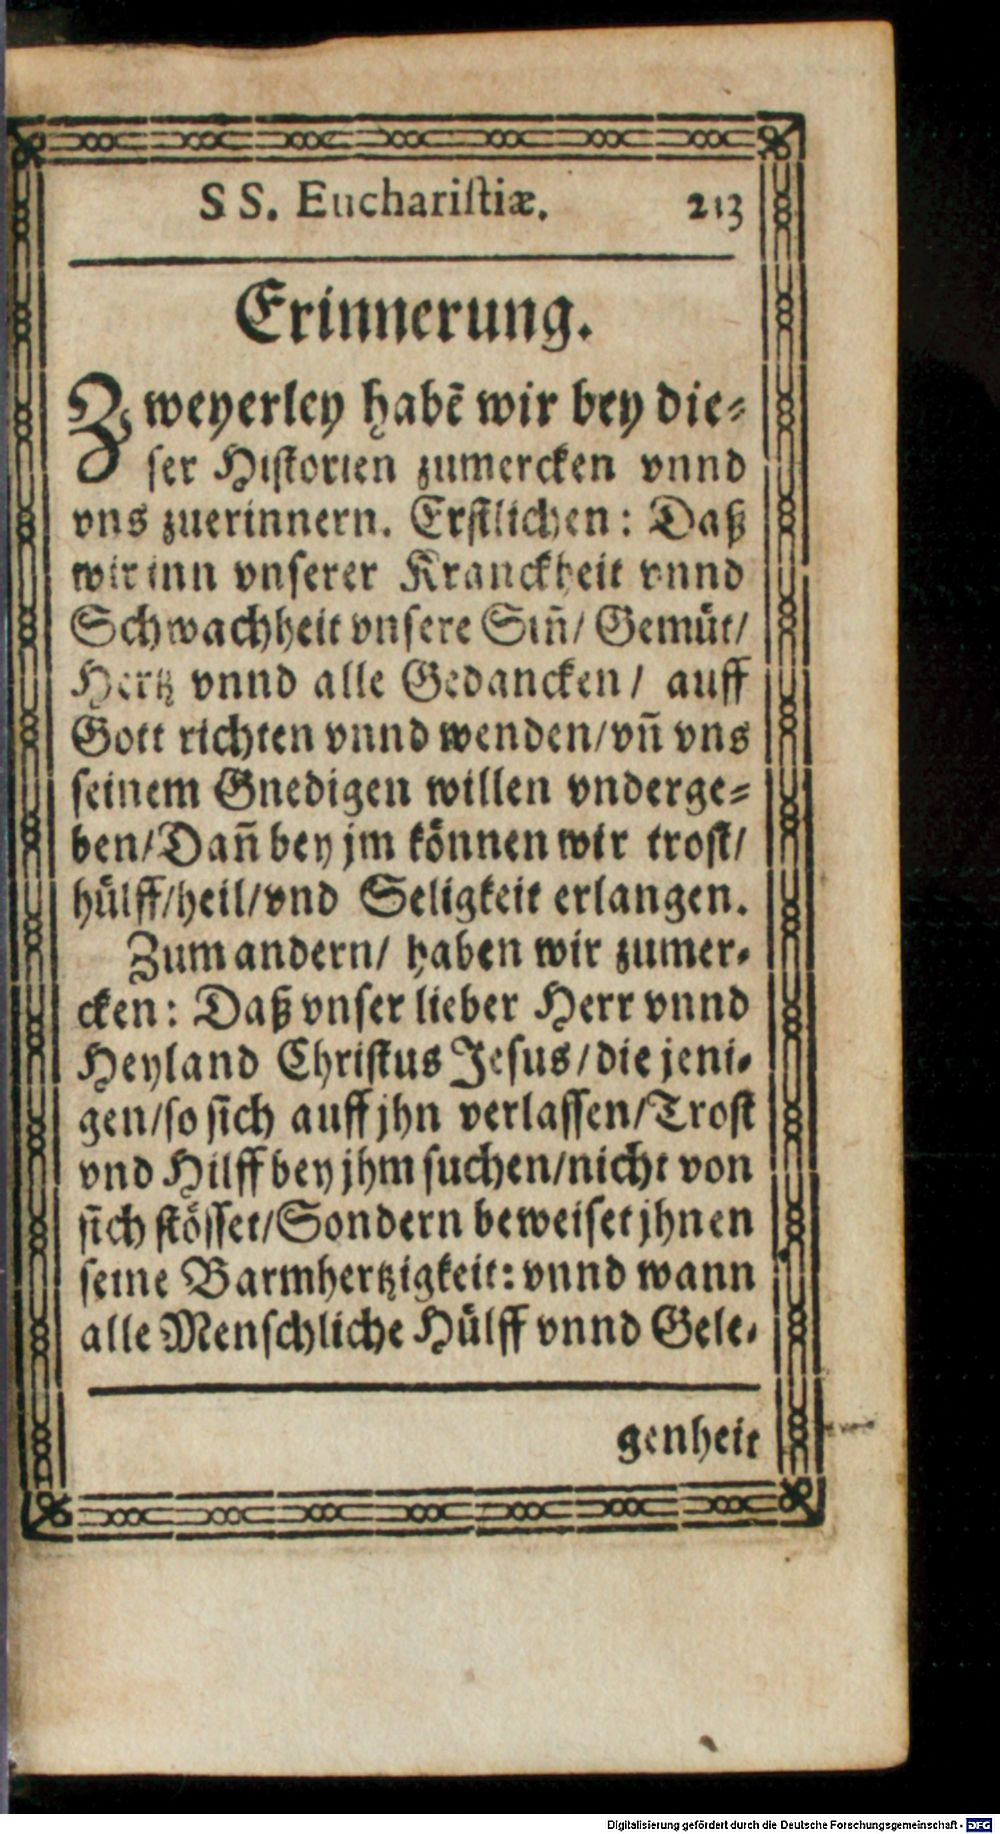 SS. Euchariſtiæ. 213
Erinnerung.
Zweyerley habẽ wir bey die⸗
ſer Hiſtorien zumercken vnnd
vns zuerinnern. Erſtlichen: Daß
wir inn vnſerer Kranckheit vnnd
Schwachheit vnſere Siñ/ Gemuͤt/
Hertz vnnd alle Gedancken/ auff
Gott richten vnnd wenden/vñ vns
ſeinem Gnedigen willen vnderge⸗
ben/Dañ bey jm koͤnnen wir troſt/
huͤlff/heil/vnd Seligkeit erlangen.
Zum andern/ haben wir zumer⸗
cken: Daß vnſer lieber Herr vnnd
Heyland Chriſtus Jeſus/die jeni⸗
gen/ſo ſich auff jhn verlaſſen/Troſt
vnd Hilff bey jhm ſuchen/nicht von
ſich ſtoͤſſet/Sondern beweiſet jhnen
ſeine Barmhertzigkeit: vnnd wann
alle Menſchliche Huͤlff vnnd Gele⸗
genheit
Digitalisierung gefördert durch die Deutsche Forschungsgemeinschaft - DFG